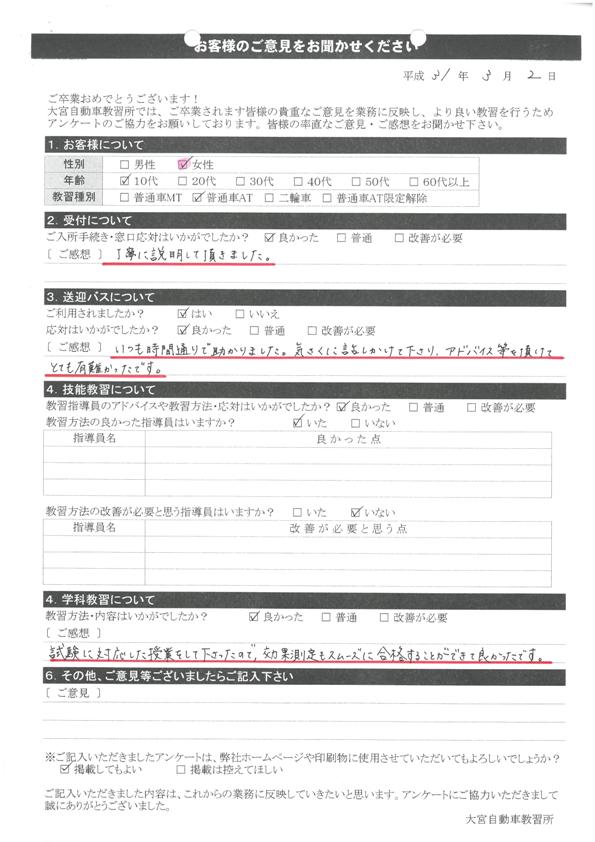 お客様のご意見をお聞かせください
平成 31 年 3 月 2 日
ご卒業おめでとうございます！
大宮自動車教習所では、ご卒業されます皆様の貴重なご意見を業務に反映し、より良い教習を行うため
アンケートのご協力をお願いしております。皆様の率直なご意見・ご感想をお聞かせ下さい。
1. お客様について
性別 □ 男性 ☑ 女性
年齢 ☑ 10代 □ 20代 □ 30代 □ 40代 □ 50代 □ 60代以上
教習種別 □ 普通車MT ☑ 普通車AT □ 二輪車 □ 普通車AT限定解除
2. 受付について
ご入所手続き・窓口応対はいかがでしたか？ ☑ 良かった □ 普通 □ 改善が必要
［ ご感想 ］ 丁寧に説明して頂きました。
3. 送迎バスについて
ご利用されましたか？ ☑ はい □ いいえ
応対はいかがでしたか？ ☑ 良かった □ 普通 □ 改善が必要
［ ご感想 ］ いつも時間通りで助かりました。気さくに話しかけて下さり、アドバイス等を頂けて
とても有難かったです。
4. 技能教習について
教習指導員のアドバイスや教習方法・応対はいかがでしたか？ ☑ 良かった □ 普通 □ 改善が必要
教習方法の良かった指導員はいますか？ ☑ いた □ いない
指導員名 良かった点
教習方法の改善が必要と思う指導員はいますか？ □ いた ☑ いない
指導員名 改善が必要と思う点
4. 学科教習について
教習方法・内容はいかがでしたか？ ☑ 良かった □ 普通 □ 改善が必要
［ ご感想 ］
試験に対応した授業をして下さったので、効果測定もスムーズに合格することができて良かったです。
6. その他、ご意見等ございましたらご記入下さい
［ ご意見 ］
※ご記入いただきましたアンケートは、弊社ホームページや印刷物に使用させていただいてもよろしいでしょうか？
☑ 掲載してもよい □ 掲載は控えてほしい
ご記入いただきました内容は、これからの業務に反映していきたいと思います。アンケートにご協力いただきまして
誠にありがとうございました。
大宮自動車教習所